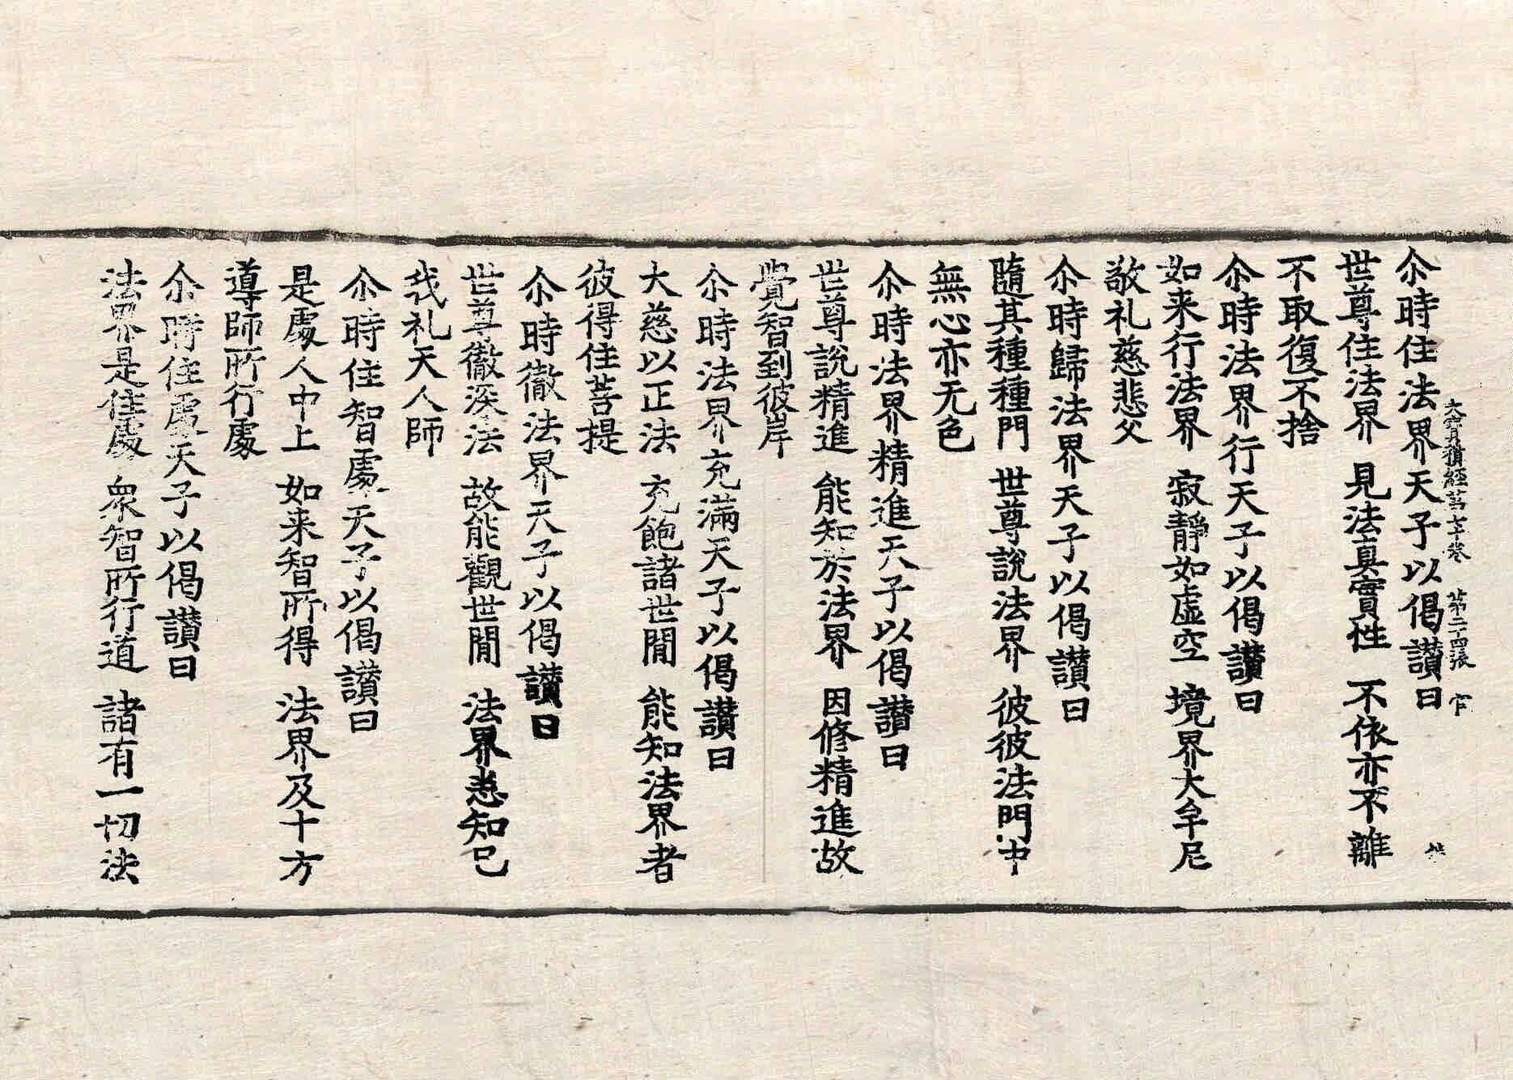 大寶積經第七十卷 第二十四張 官
尒時住法界天子以偈讃曰
世尊住法界 見法真實性 不依亦不離
不取復不捨
尒時法界行天子以偈讃曰
如来行法界 寂靜如虛空 境界大牟尼
敬礼慈悲父
尒時歸法界天子以偈讃曰
隨其種種門 世尊說法界 彼彼法門中
無心亦无色
尒時法界精進天子以偈讃曰
世尊說精進 能知於法界 因修精進故
覺智到彼岸
尒時法界充滿天子以偈讃曰
大慈以正法 充飽諸世閒 能知法界者
彼得住菩提
尒時徹法界天子以偈讃曰
世尊徹深法 故能觀世閒 法界悉知已
我礼天人師
尒時住智處天子以偈讃曰
是處人中上 如来智所得 法界及十方
導師所行處
尒時住處天子以偈讃曰
法界是住處 衆智所行道 諸有一切法